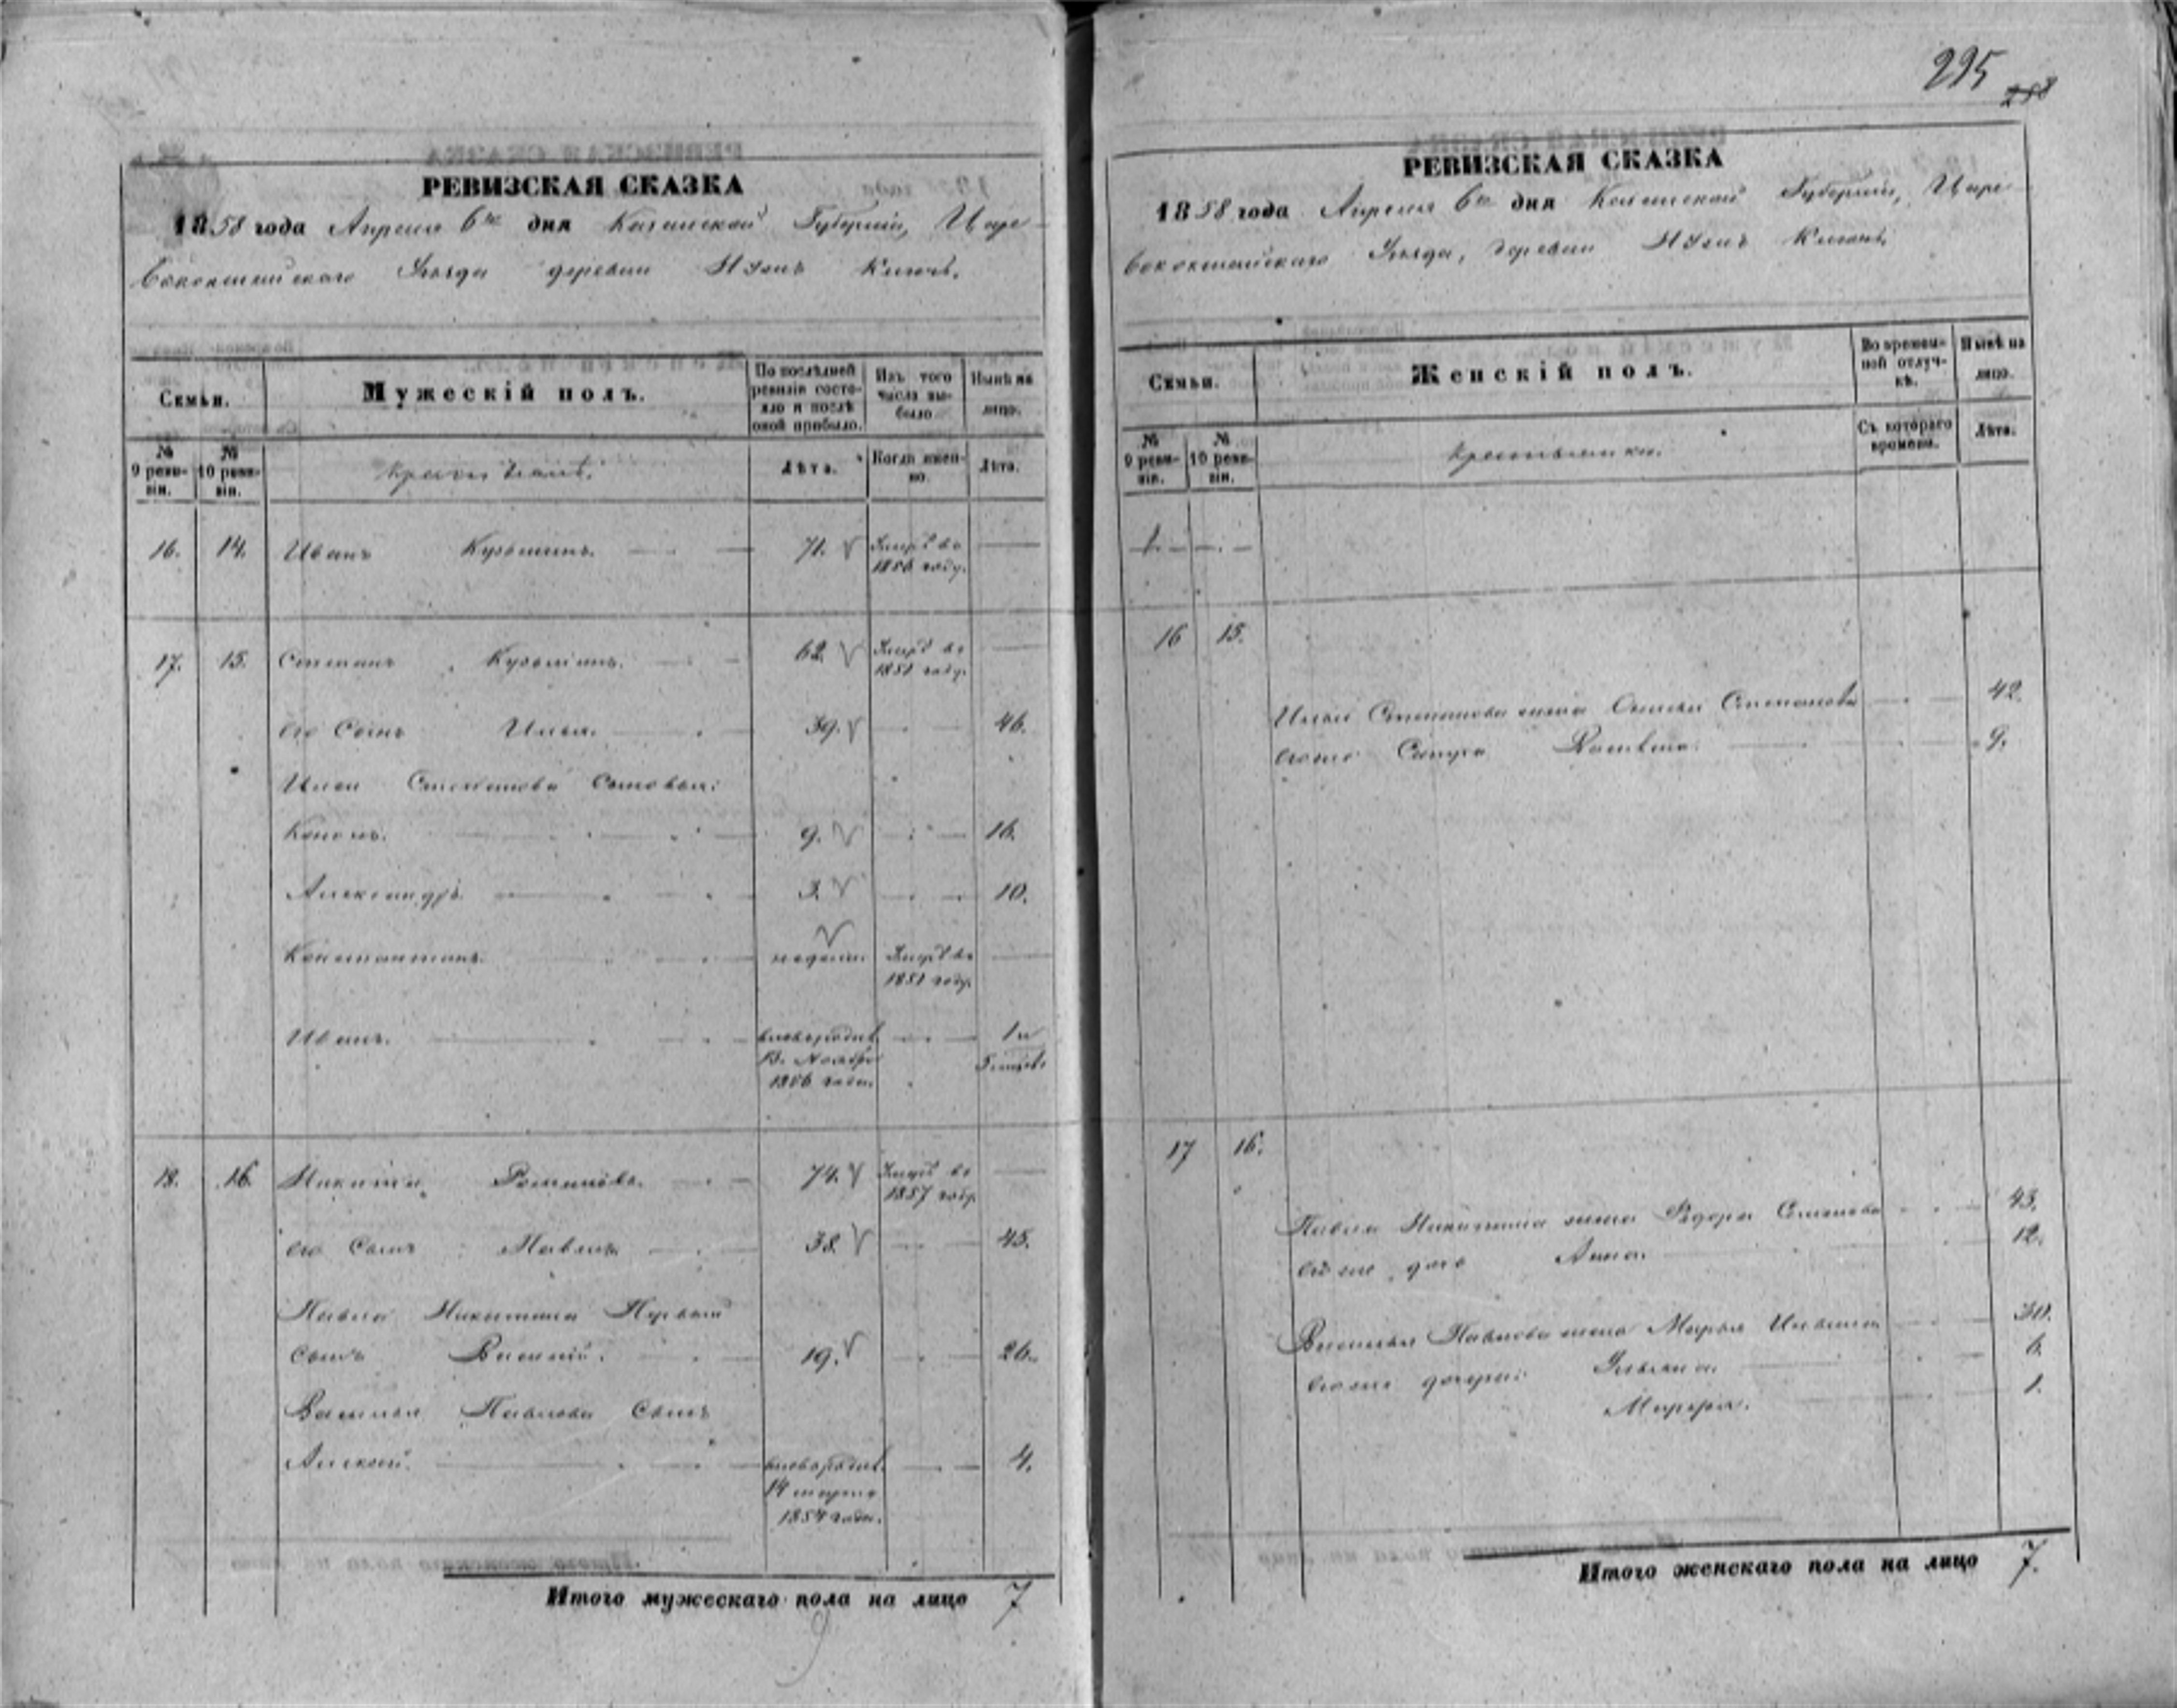 295
258
РЕВИЗСКАЯ СКАЗКА
1858 года Апреля 6го дня Казанской Губернии, Царе-
вококшайскаго Уезда деревни
Семьи.
Мужескій полъ.
По послѣдней ревизіи состояло и послѣ оной прибыло.
Изъ того числа выбыло.
Нынѣ на лицо.
№ 9 ревизіи.
№ 10 ревизіи.
Крестьяне.
Лѣта.
Когда именно.
Лѣта.
16. 14. Иванъ Кузьминъ. 71. Умеръ въ 1856 году.
17. 15. Степанъ Кузьминъ. 62. Умеръ въ 1851 году.
его Сынъ Илья. 39. 46.
Ильи Степанова Сыновья:
Кононъ. 9. 16.
Александръ. 3. 10.
Константинъ. недели Умеръ въ 1851 году.
Иванъ. новорожд. 13. Ноября 1856 года. 1 и 5 месяц.
18. 16. Никита Романовъ. 74. Умеръ въ 1857 году
его Сынъ Павелъ 38. 45.
Павла Никитина Первый
Сынъ Василій. 19. 26.
Василья Павлова Сынъ
Алексей. новорожд. 14 марта 1854 года. 4.
Итого мужескаго пола на лицо 7
9
РЕВИЗСКАЯ СКАЗКА
1858 года Апреля 6го дня Казанской Губернии, Царе-
вококшайскаго Уезда, деревни
Семьи.
Женскій полъ.
Во временной отлучкѣ.
Нынѣ на лицо.
№ 9 ревизіи.
№ 10 ревизіи.
Крестьянки.
Съ котораго времени.
Лѣта.
16 15.
Ильи Степанова жена Степанова 42.
9.
17 16.
Павла Никитина жена Федора Семенова 43.
его же дочь Анна. 12.
Василья Павлова жена Марья Ильина 30.
его же дочери: Ульяна 6.
Марфа. 1.
Итого женскаго пола на лицо 7.